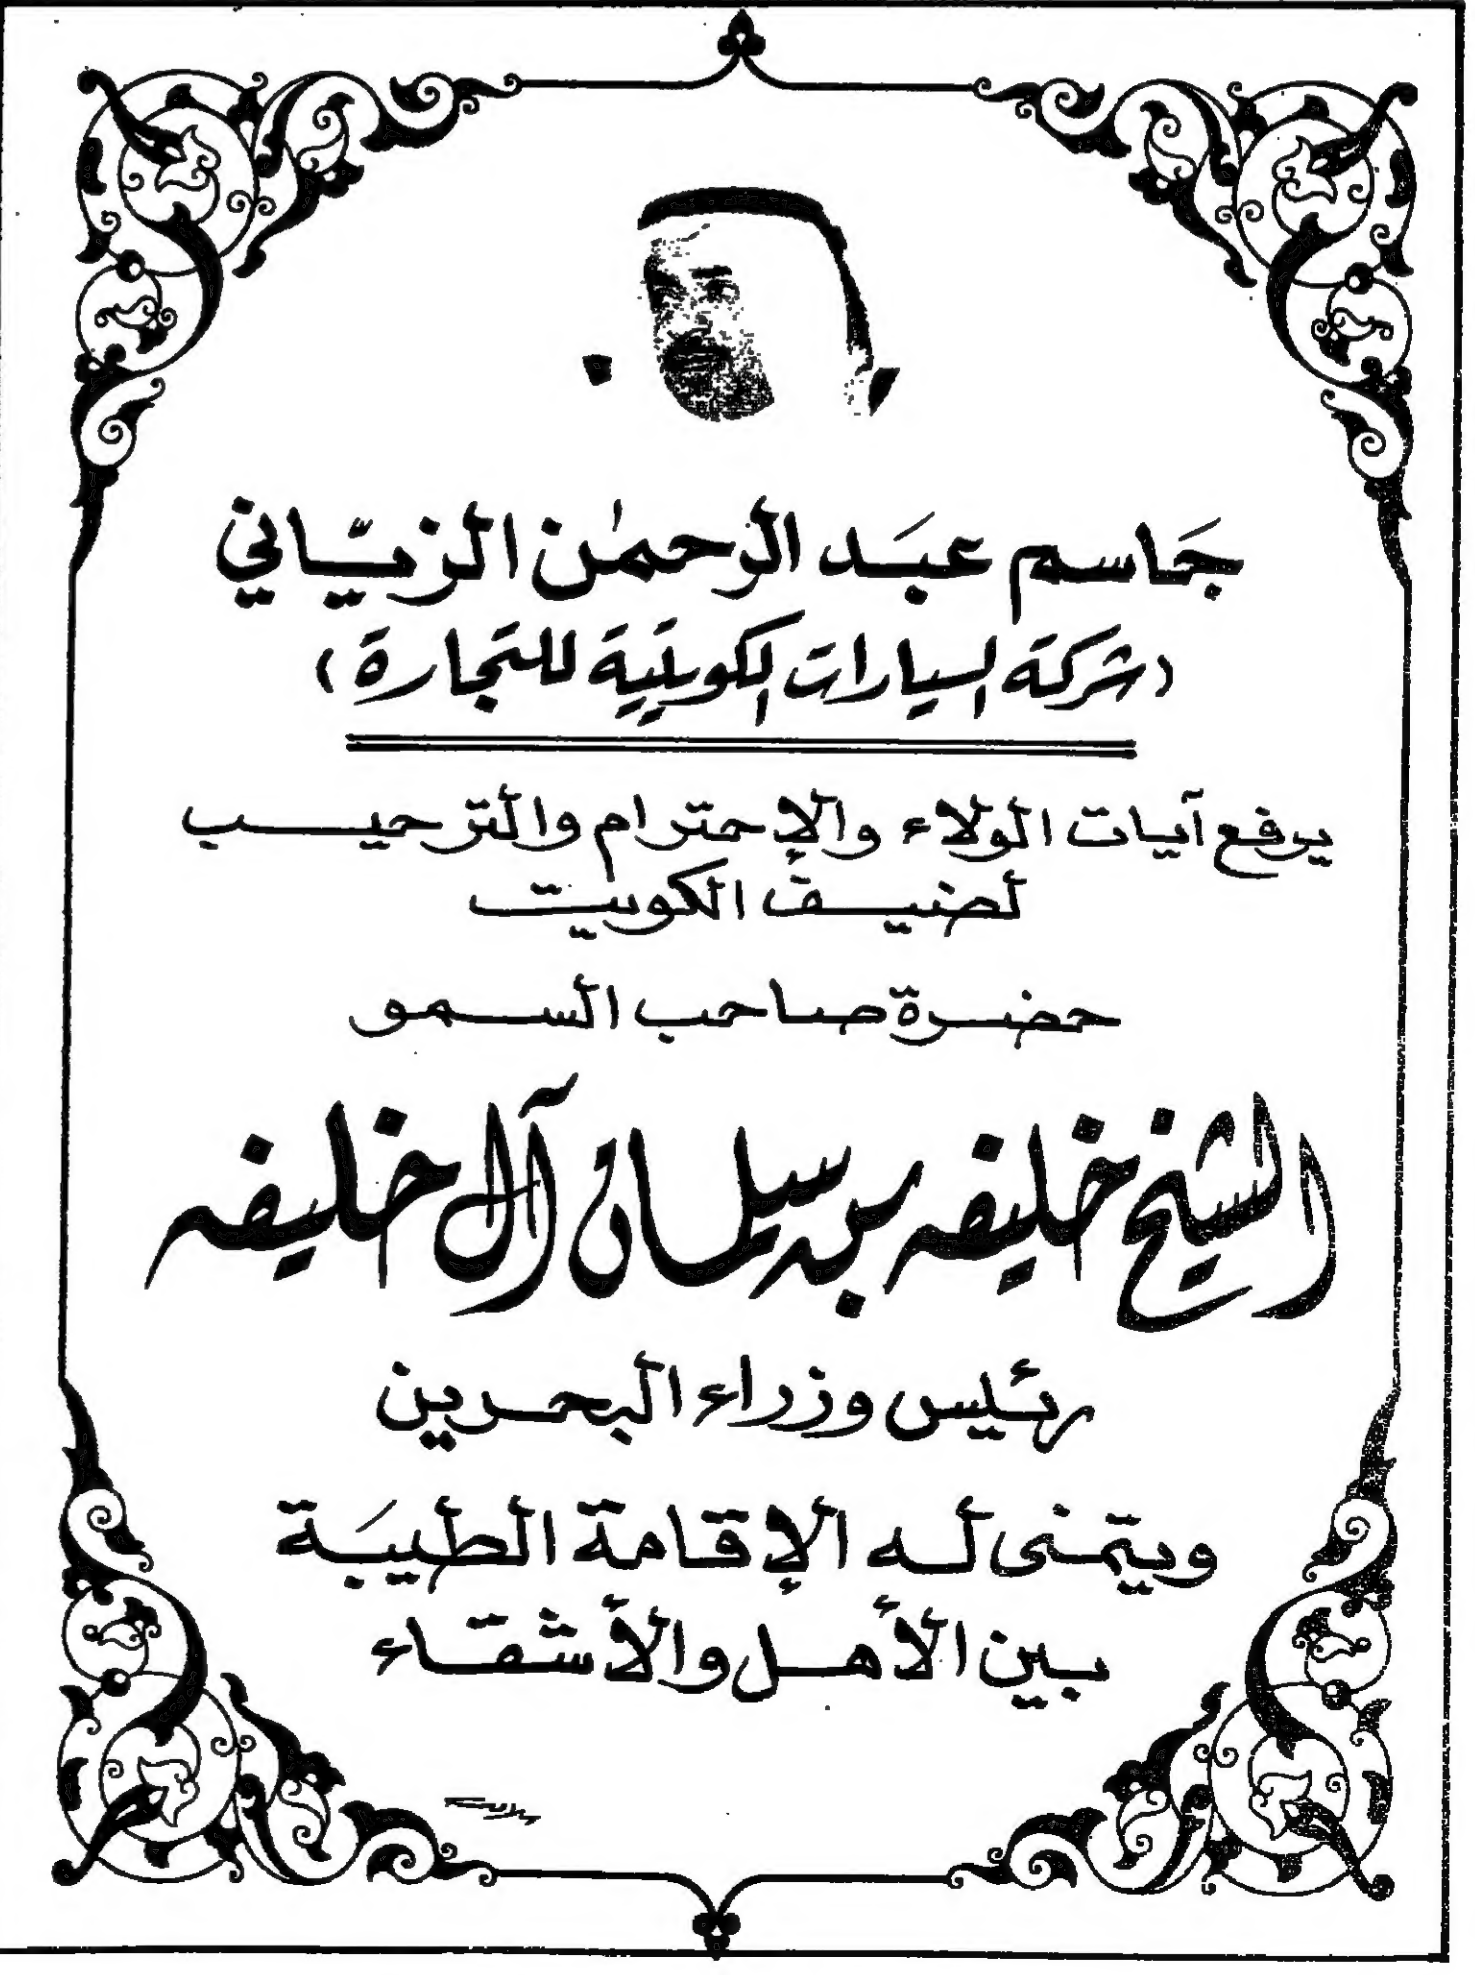 جَاسم عبَد الرحمٰن الزيّاني
(شركة السيارات الكويتية للتجارة)
يرفع آيات الولاء والإحترام والترحيب
لضيف الكويت
حضرة صاحب السمو
الشيخ خليفه بن سلمان آل خليفه
رئيس وزراء البحرين
ويتمنى له الإقامة الطيبَة
بين الأهل والأشقاء